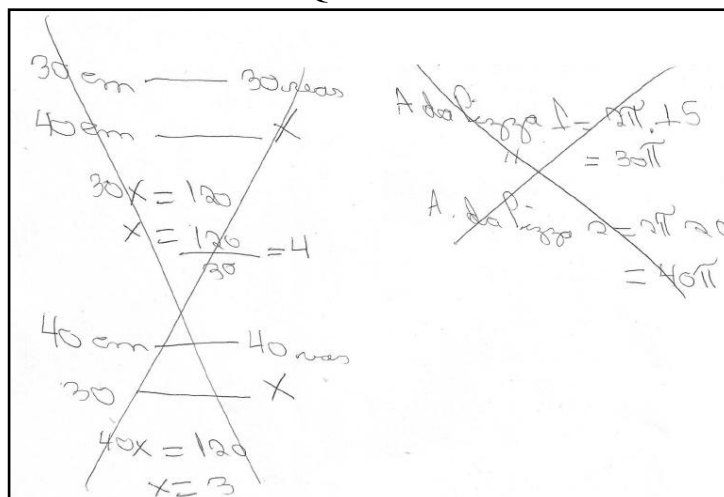 30 cm — 30 reais
40 cm — x
30x = 120
x = 120/30 = 4
40 cm — 40 reais
30 — x
40x = 120
x = 3
A da Pizza 1 = 2π . 15
= 30π
A. da Pizza 2 = 2π 20
= 40π